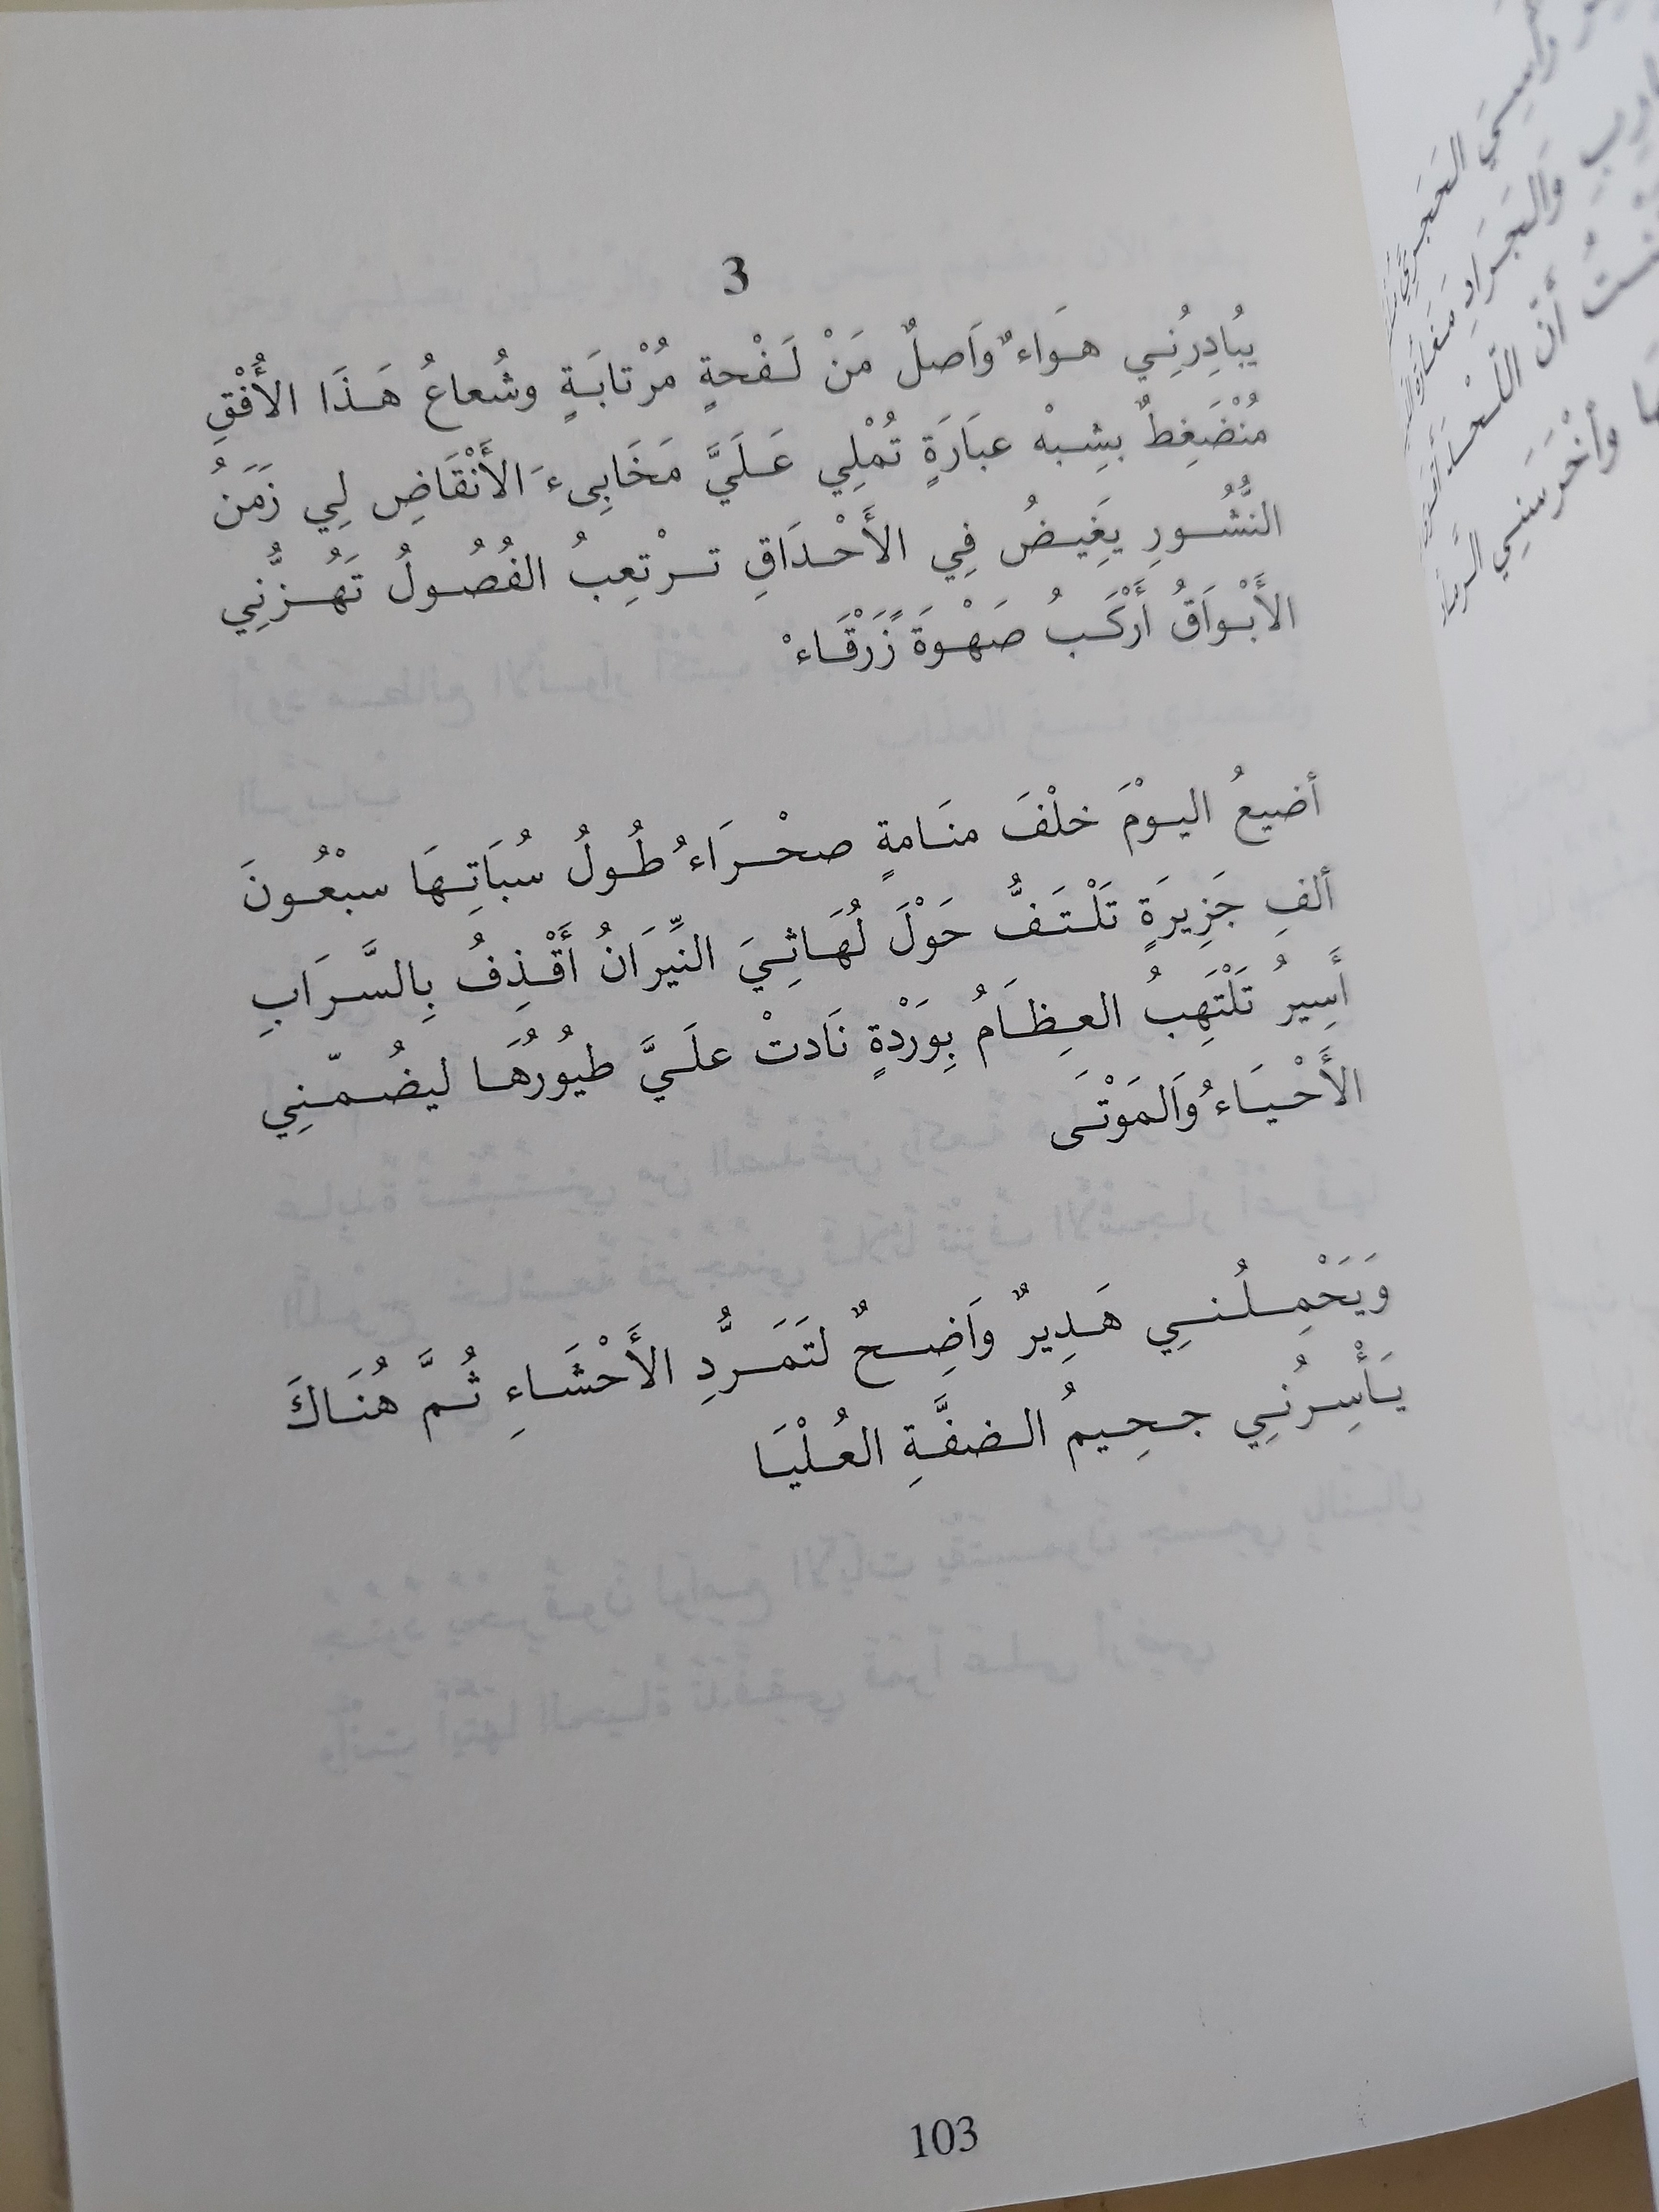 3
يُبادِرُنِي هَوَاءٌ وَاصلٌ مَنْ لَفْحةٍ مُرْتابَةٍ وشُعاعُ هَذَا الأُفْقِ
مُنْضَغِطٌ بشِبْه عبَارَةٍ تُمْلِي عَلَيَّ مَخَابِىءَ الأَنْقَاضِ لِي زَمَنُ
النُّشُورِ يَغِيضُ فِي الأَحْدَاقِ تَرْتعِبُ الفُصُولُ تَهُزُّنِي
الأَبْوَاقُ أَرْكَبُ صَهْوَةً زَرْقَاءْ
أضيعُ اليوْمَ خلْفَ منَامةٍ صحْرَاءُ طُولُ سُبَاتِهَا سبْعُونَ
ألفِ جَزِيرَةٍ تَلْتَفُّ حَوْلَ لُهَاثِيَ النِّيرَانُ أَقْذِفُ بِالسَّرَابِ
أَسِيرُ تَلْتَهِبُ العِظَامُ بِوَرْدْةٍ نَادتْ علَيَّ طيُورُهَا ليضُمّنِي
الأَحْيَاءُ وَالمَوْتَى
وَيَحْمِلُنِي هَدِيرٌ وَاضِحٌ لتَمَرُّدِ الأَحْشَاءِ ثُمَّ هُنَاكَ
يَأْسِرُنِي جحِيمُ الضفَّةِ العُلْيَا
103